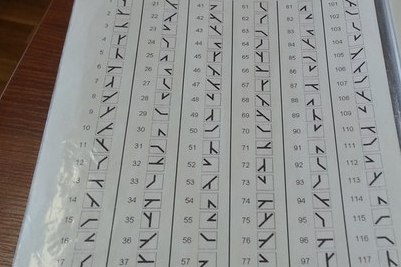 2
3
4
5
6
7
8
9
10
11
12
13
14
15
16
17
21
22
23
24
25
26
27
28
29
30
31
32
33
34
35
36
37
41
42
43
44
45
46
47
48
49
50
51
52
53
54
55
56
57
61
62
63
64
65
66
67
68
69
70
71
72
73
74
75
76
77
81
82
83
84
85
86
87
88
89
90
91
92
93
94
95
96
97
101
102
103
104
105
106
107
108
109
110
111
112
113
114
115
116
117